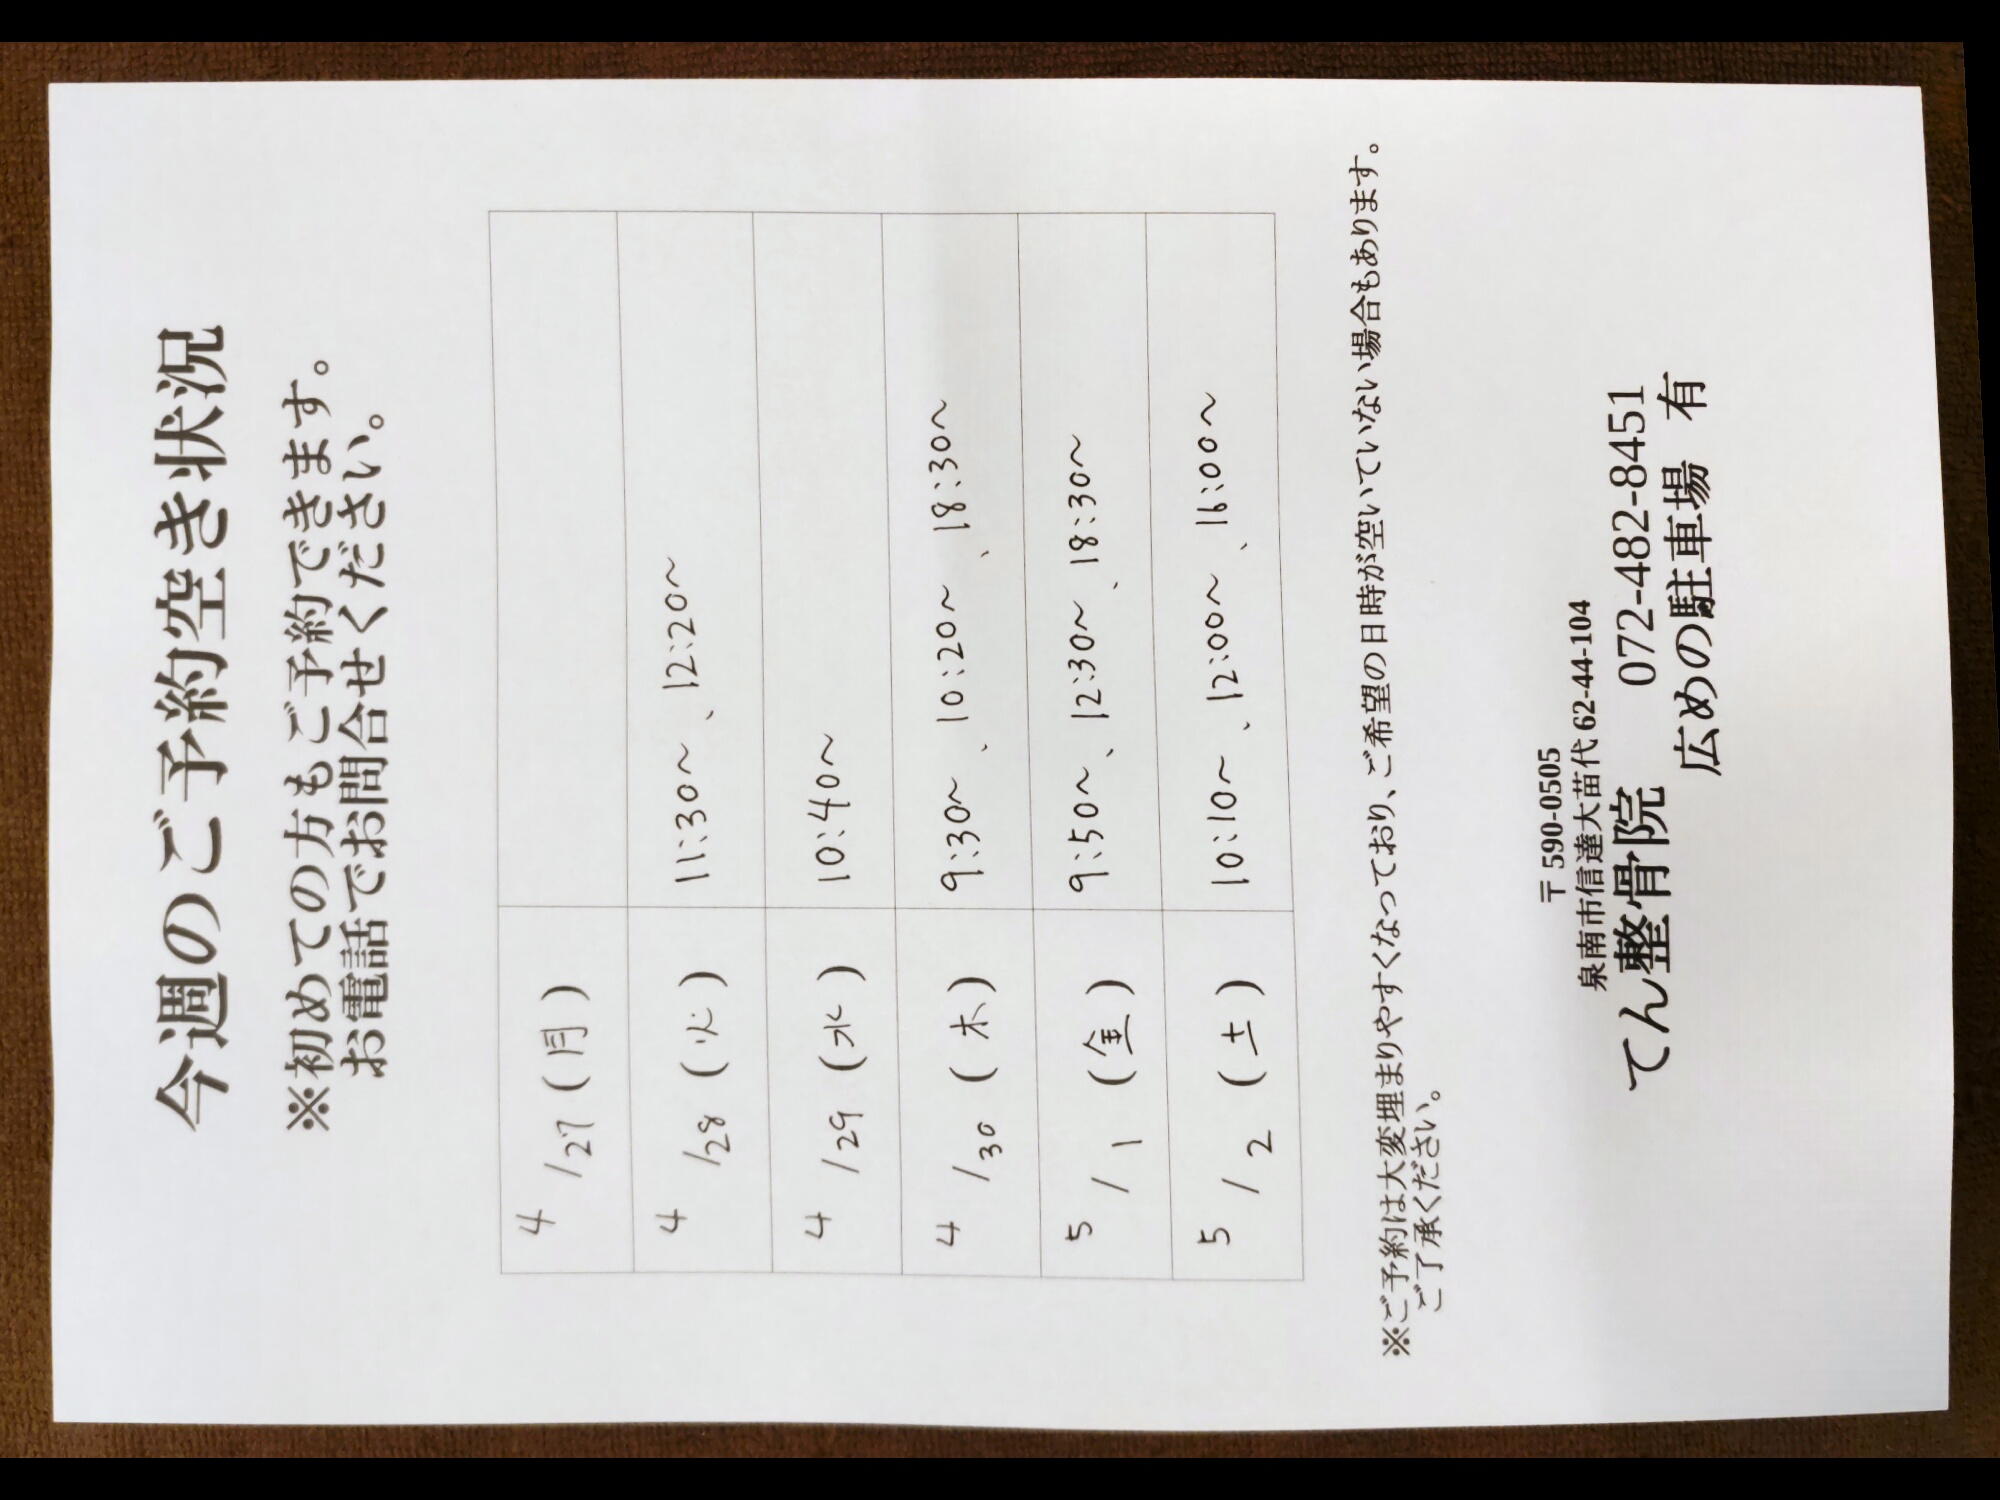 今週のご予約空き状況
※初めての方もご予約できます。
お電話でお問合せください。
4/27(月)
4/28(火) 11:30〜、12:20〜
4/29(水) 10:40〜
4/30(木) 9:30〜、10:20〜、18:30〜
5/1(金) 9:50〜、12:30〜、18:30〜
5/2(土) 10:10〜、12:00〜、16:00〜
※ご予約は大変埋まりやすくなっており、ご希望の日時が空いていない場合もあります。
ご了承ください。
〒590-0505
泉南市信達大苗代 62-44-104
てん整骨院 072-482-8451
広めの駐車場 有